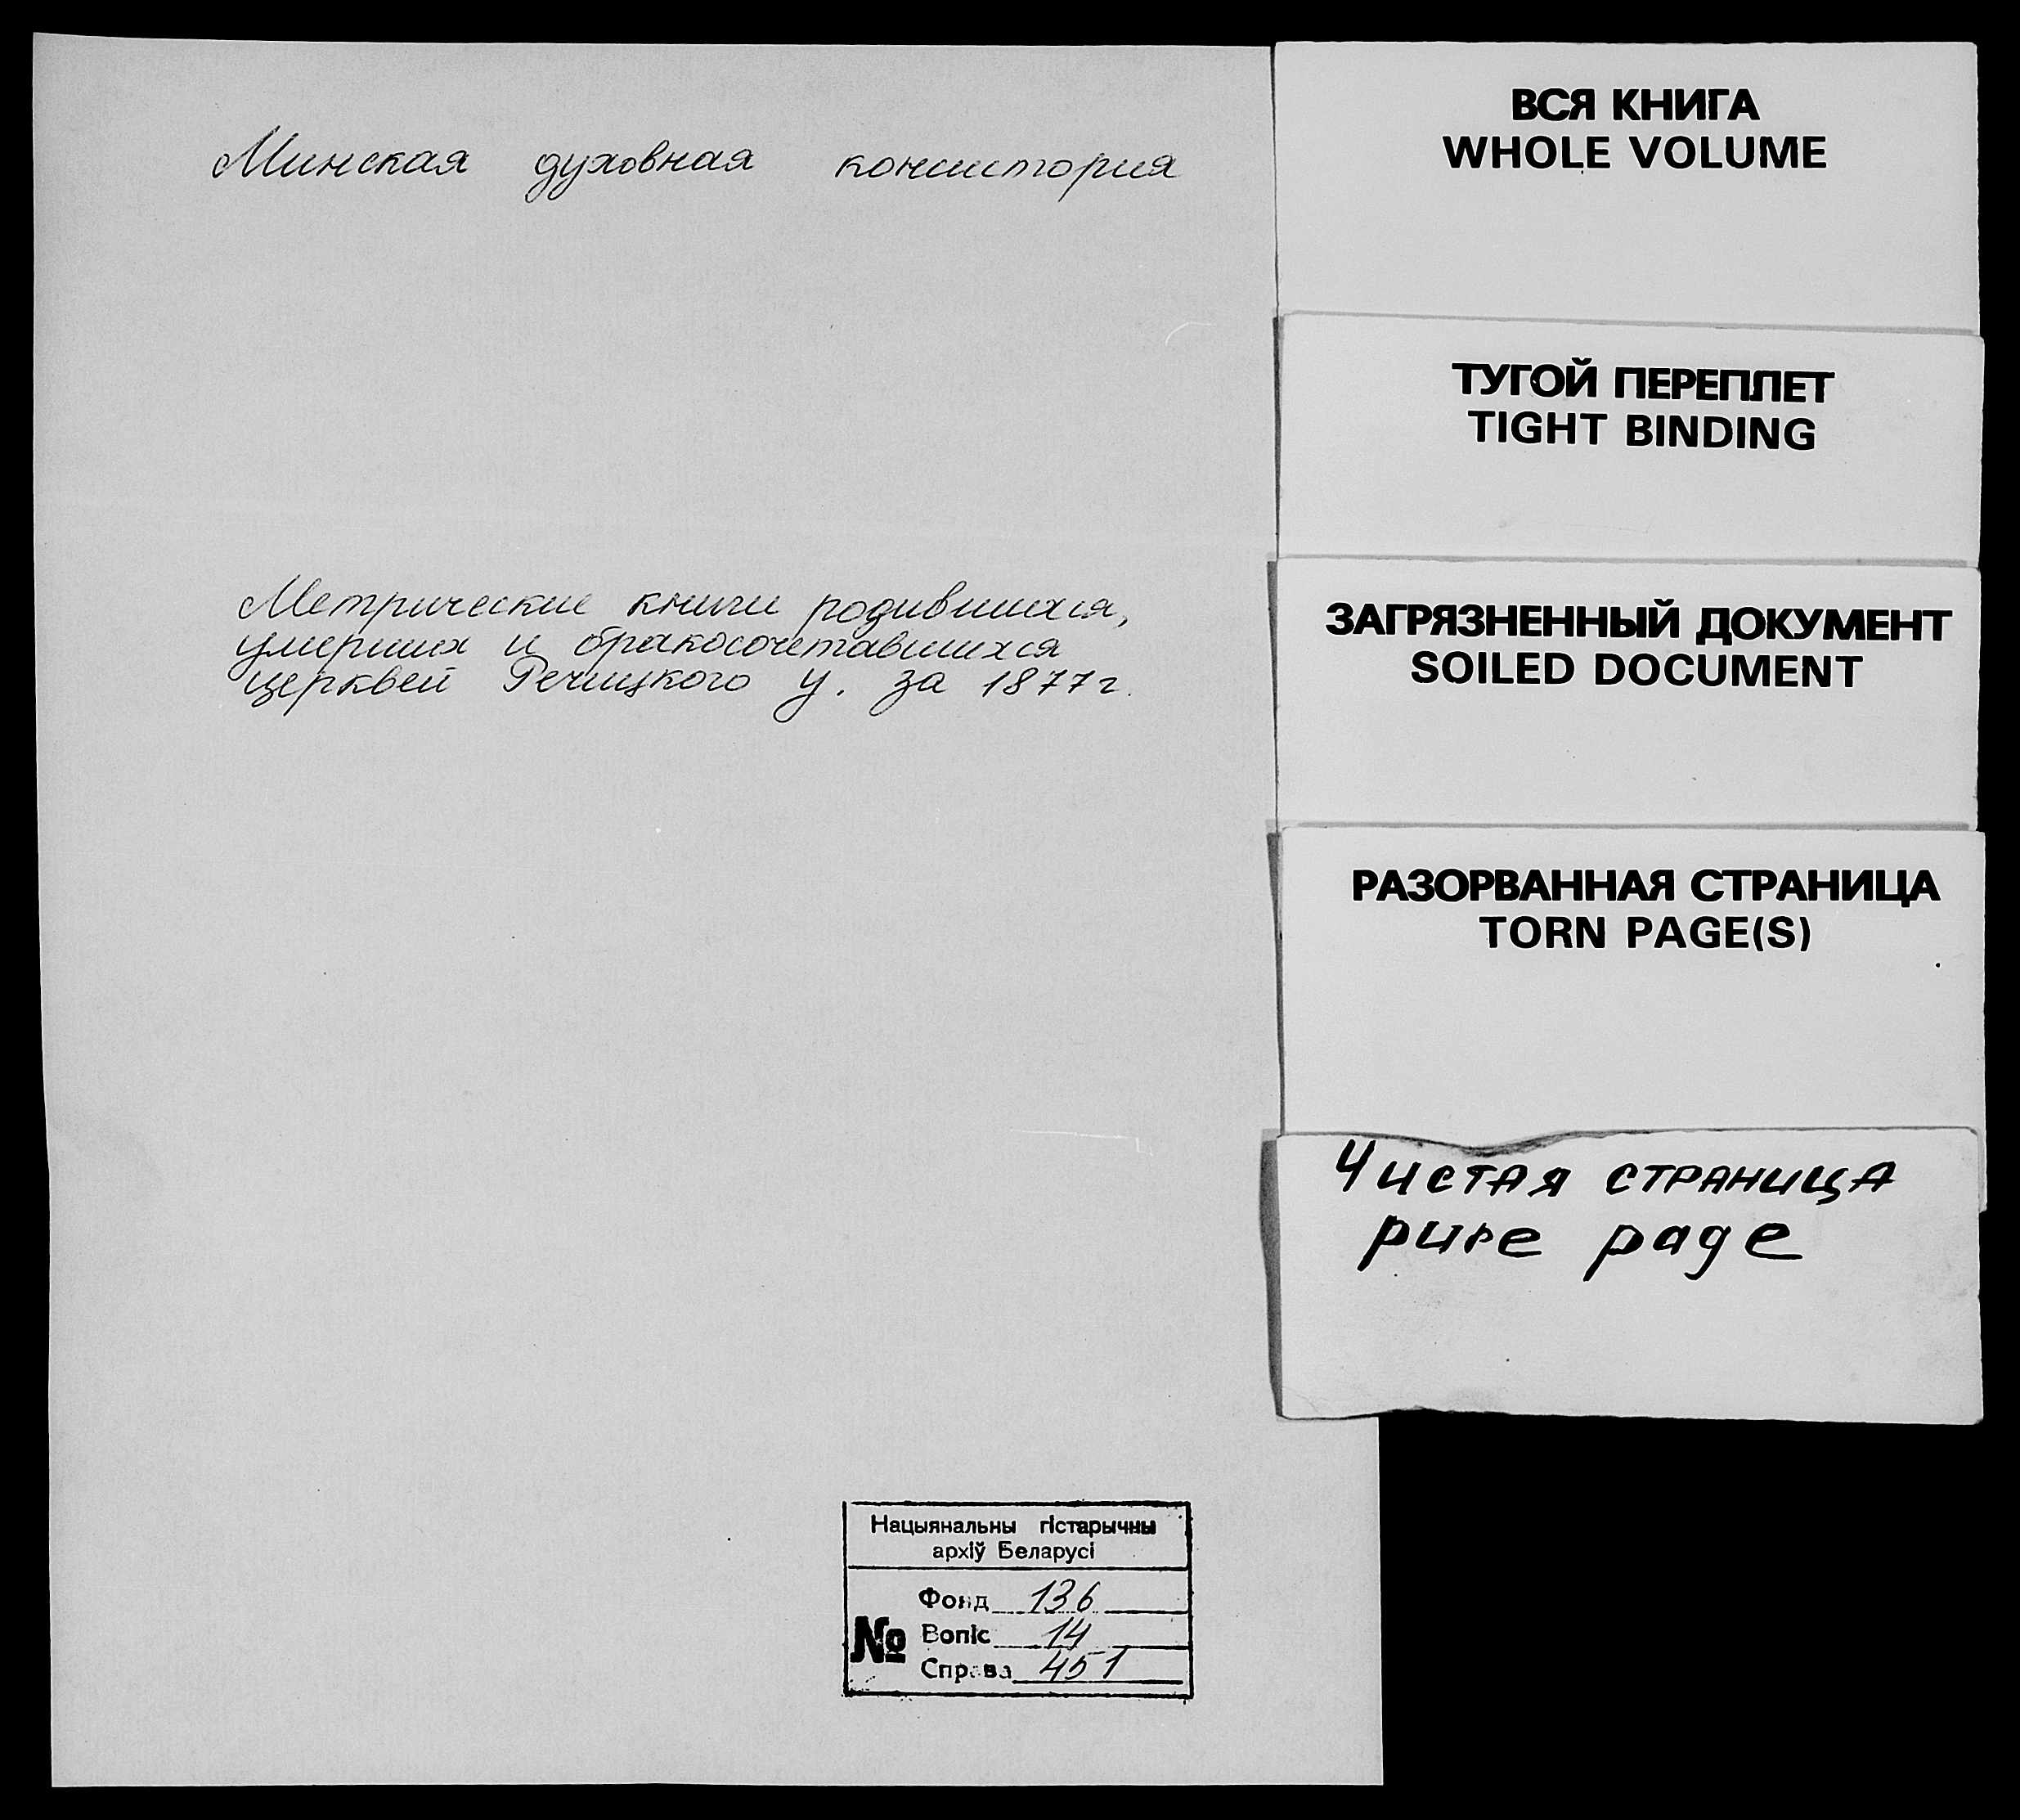 Минская духовная консистория
Метрические книги родившихся,
умерших и бракосочетавшихся
церквей Речицкого у. за 1877 г.
Нацыянальны гістарычны
архіў Беларусі
№
Фонд 136
Вопіс 14
Справа 451
ВСЯ КНИГА
WHOLE VOLUME
ТУГОЙ ПЕРЕПЛЕТ
TIGHT BINDING
ЗАГРЯЗНЕННЫЙ ДОКУМЕНТ
SOILED DOCUMENT
РАЗОРВАННАЯ СТРАНИЦА
TORN PAGE(S)
Чистая страница
pure page